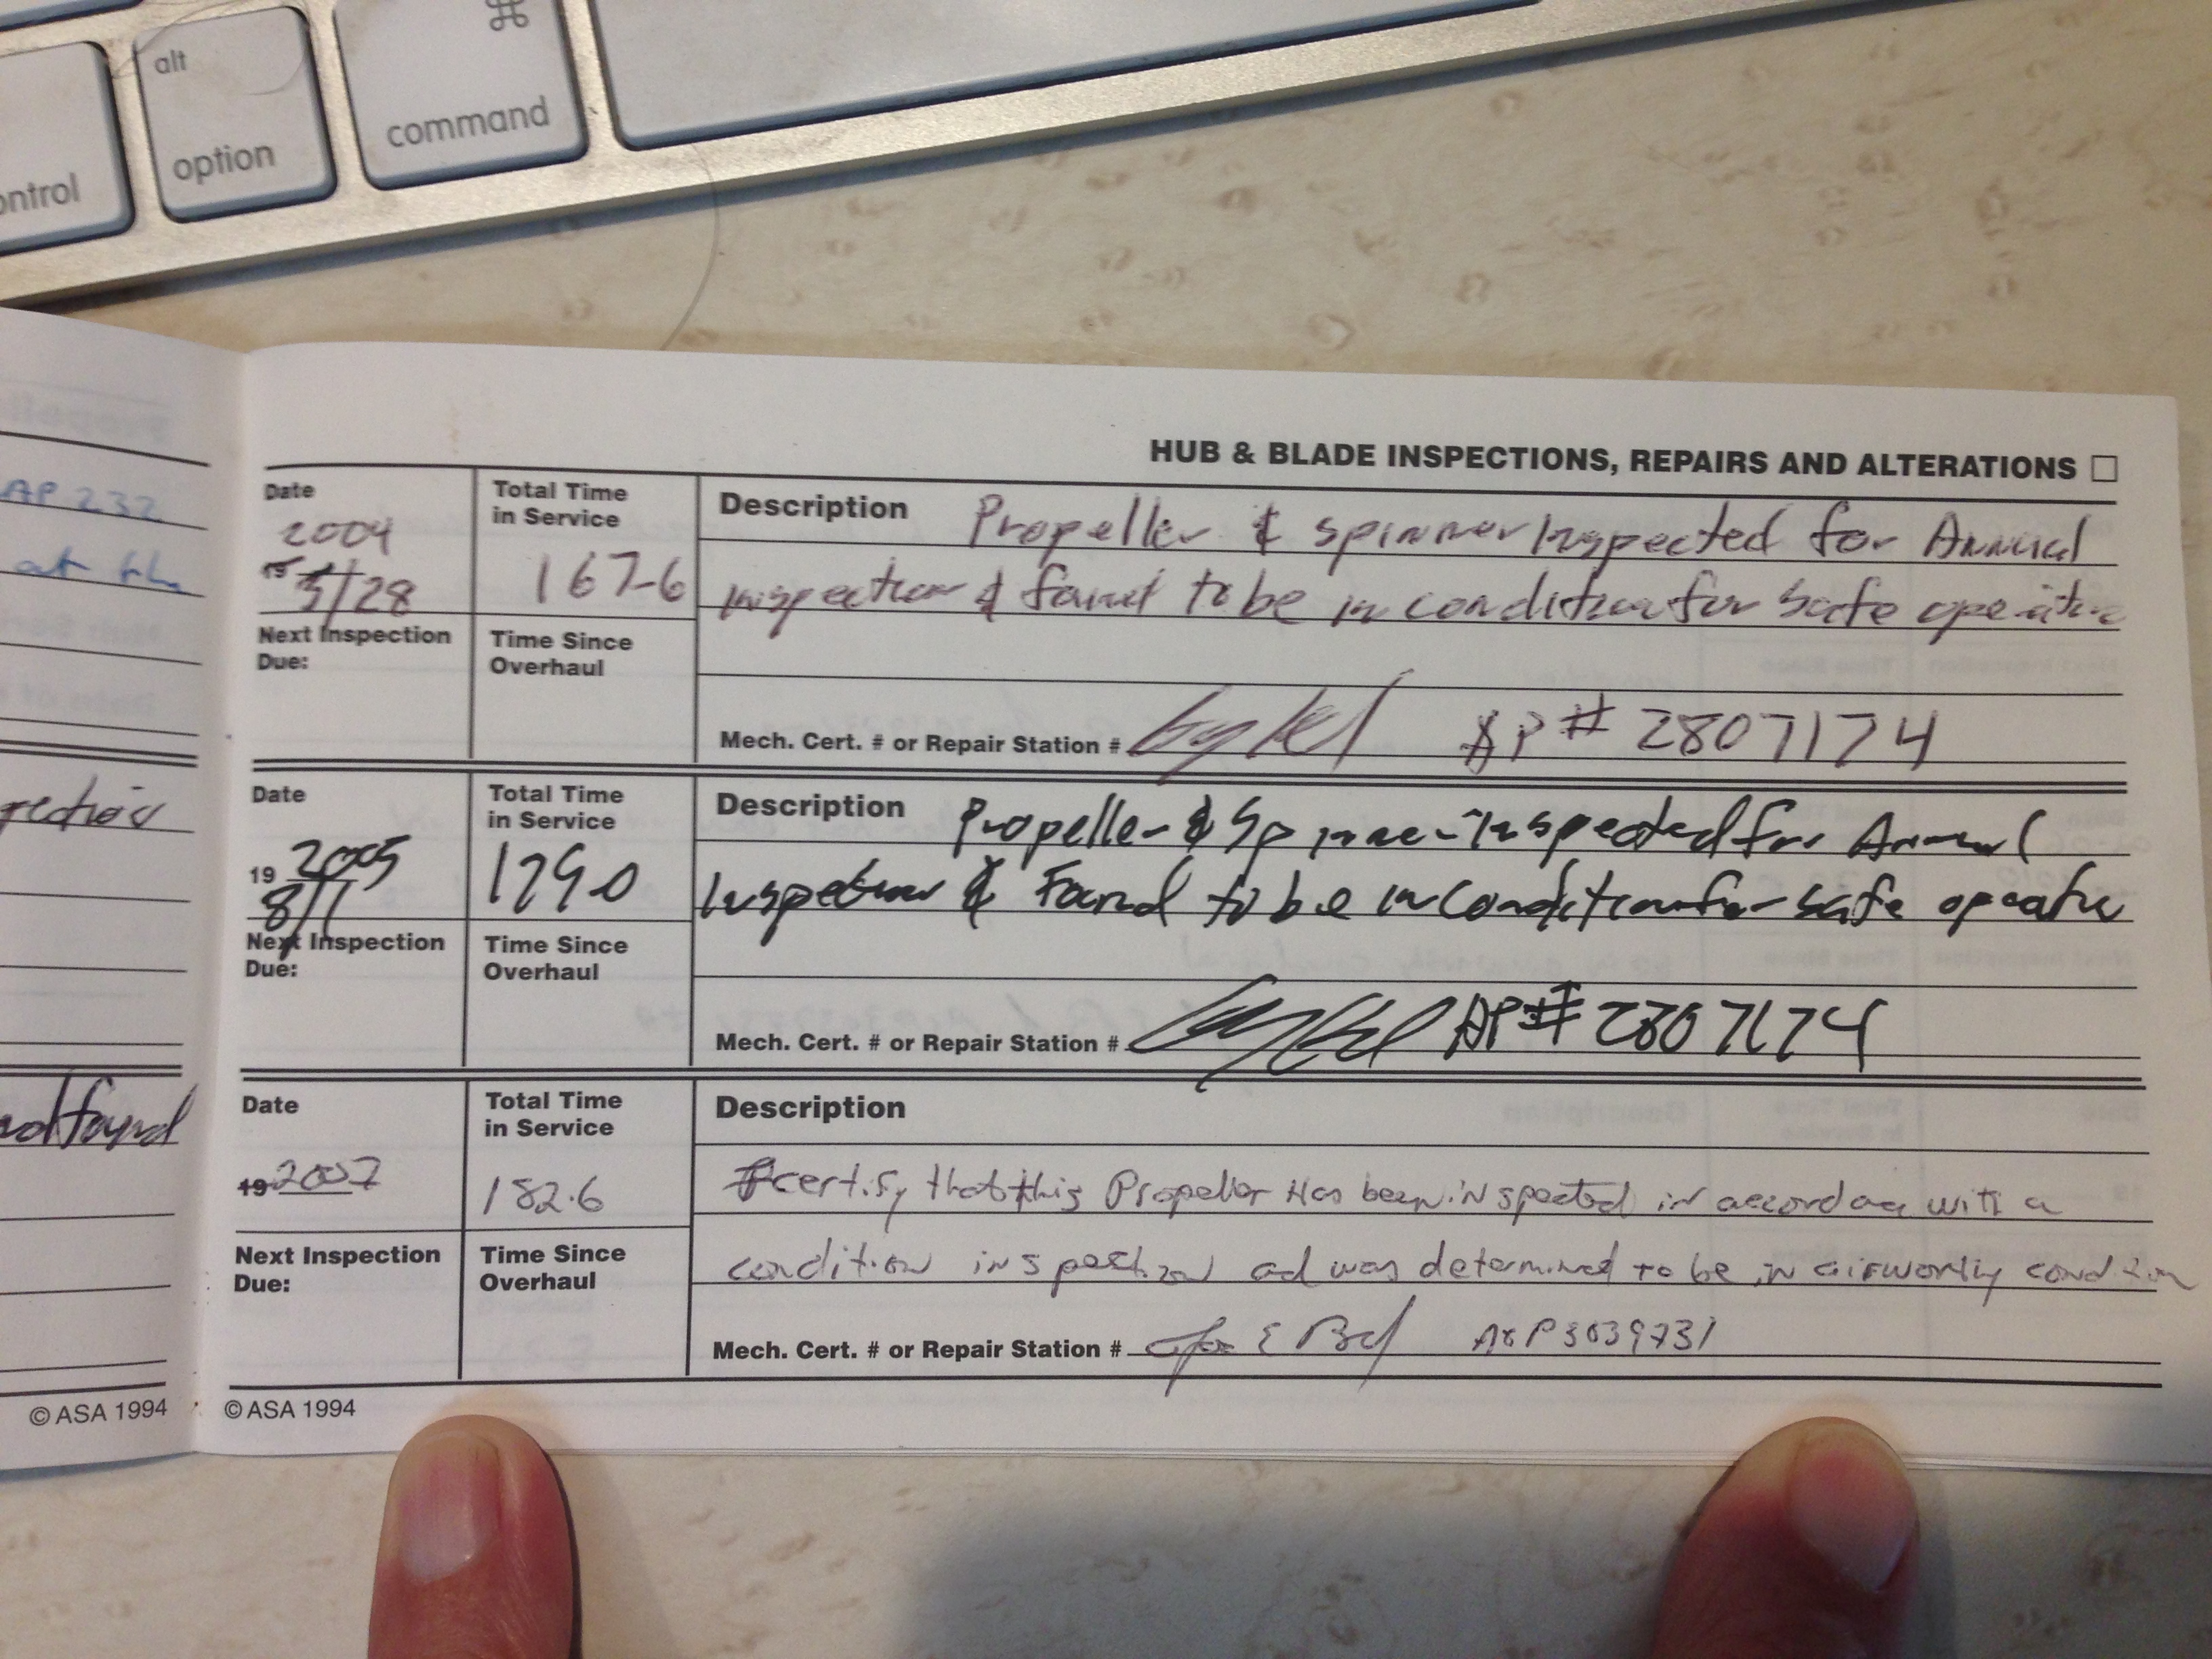 alt
⌘
control
option
command
AP 232
at the
nd found
HUB & BLADE INSPECTIONS, REPAIRS AND ALTERATIONS
Date
2004
5/28
Total Time
in Service
167.6
Description Propeller & spinner Inspected for Annual
Inspection & found to be in condition for safe operation
Next Inspection
Due:
Time Since
Overhaul
Mech. Cert. # or Repair Station # AP # 2807174
Date
19 2005
8/1
Total Time
in Service
Description Propeller & Spinner Inspected for Annual
Inspection & Found to be in condition for safe operation
Next Inspection
Due:
Time Since
Overhaul
Mech. Cert. # or Repair Station # AP# 2807174
Date
19 2007
Total Time
in Service
182.6
Description
I certify that this Propeller Has been inspected in accordance with a
condition inspection ad was determined to be in airworthy condition
Next Inspection
Due:
Time Since
Overhaul
Mech. Cert. # or Repair Station # A&P 3039731
© ASA 1994
© ASA 1994